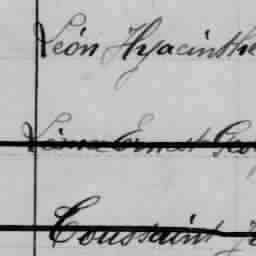 Léon Hyacinthe
Ernest Geo
Toussaint